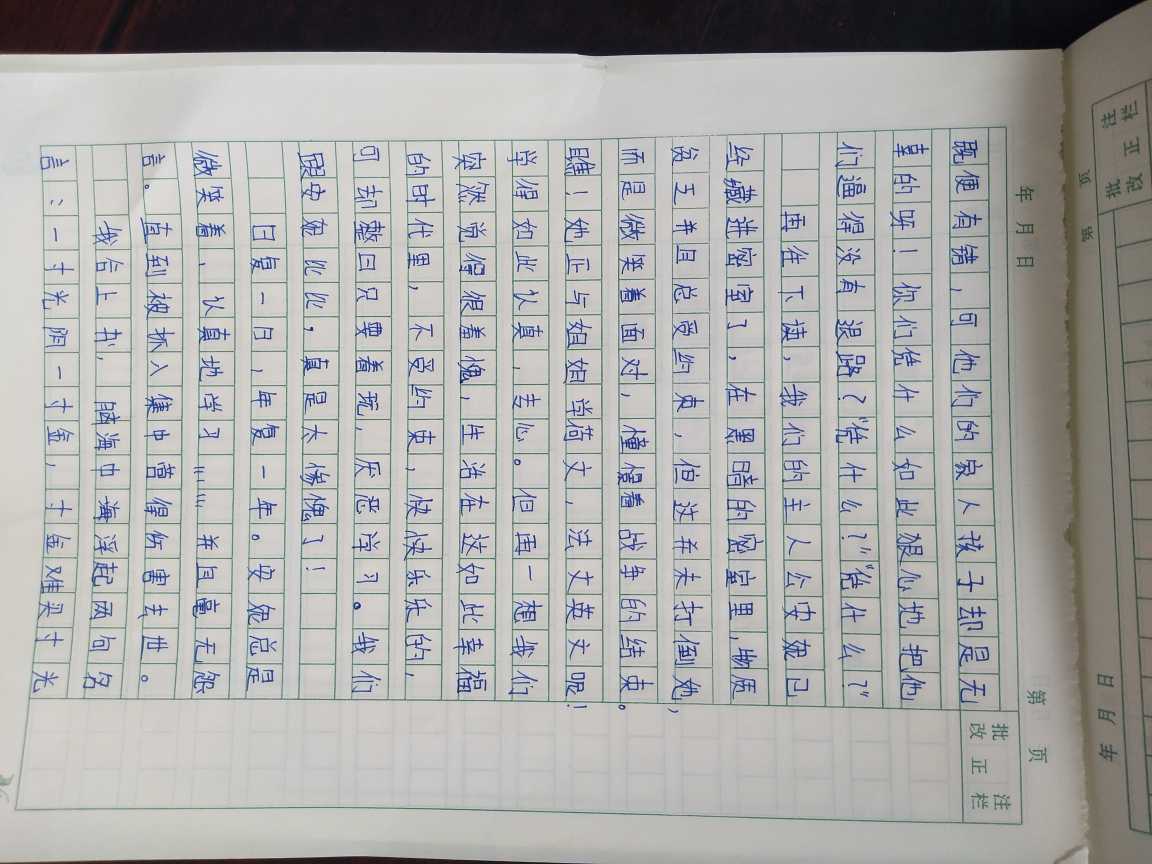 年 月 日
第 页
批改 注正栏
既便有错，可他们的家人孩子却是无
辜的呀！你们凭什么如此狠心地把他
们逼得没有退路？“凭什么？”“凭什么？”
再往下读，我们的主人公安妮已
经藏进密室了，在黑暗的密室里，物质
贫乏并且总受约束，但这并未打倒她，
而是微笑着面对，憧憬着战争的结束。
瞧！她正与姐姐学荷文，法文英文呢！
学得如此认真，专心。但再一想我们
突然觉得很羞愧，生活在这如此幸福
的时代里，不受约束，快快乐乐的，
可却整日只要着玩，厌恶学习。我们
跟安妮比比，真是太惭愧了！
日复一日，年复一年。安妮总是
微笑着、认真地学习……并且毫无怨
言。直到被抓入集中营得伤害去世。
我合上书，脑海中海浮起两句名
言：一寸光阴一寸金，寸金难买寸光
第 页
批改 注正栏
年 月 日